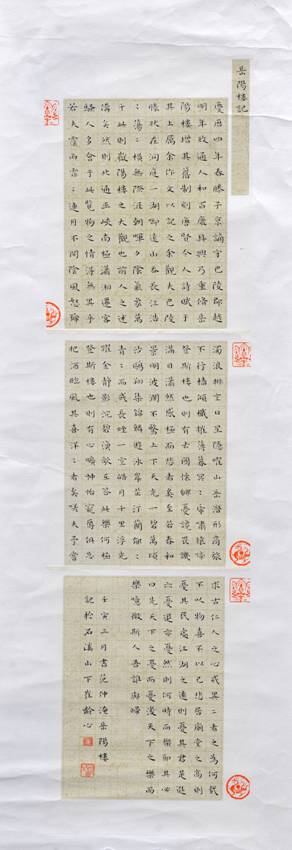 岳陽樓記
慶曆四年春滕子京謫守巴陵郡越
明年政通人和百廢具興乃重脩岳
陽樓增其舊制刻唐賢今人詩賦于
其上屬余作文以記之余觀夫巴陵
勝狀在洞庭一湖啣遠山吞長江浩
：蕩：橫無際涯朝暉夕陰氣象萬
千此則嶽陽樓之大觀也前人之述
備矣然則北通巫峽南極瀟湘遷客
騷人多會于此覽物之情得無異乎
若夫霪雨霏：連月不開陰風怒號
濁浪排空日星隱曜山岳潛形商旅
不行檣傾楫摧薄暮冥：虎嘯猿啼
登斯樓也則有去國懷鄉憂讒畏譏
滿目蕭然感極而悲者矣至若春和
景明波瀾不驚上下天光一碧萬頃
沙鷗翔集錦鱗游泳岸芷汀蘭郁：
青：而或長煙一空皓月千里浮光
耀金靜影沉碧漁歌互答此樂何極
登斯樓也則有心曠神怡寵辱俱忘
把酒臨風其喜洋：者矣嗟夫予嘗
求古仁人之心或異二者之為何哉
不以物喜不以己悲居廟堂之高則
憂其民處江湖之遠則憂其君是進
亦憂退亦憂然則何時而樂耶其必
曰先天下之憂而憂後天下之樂而
樂噫微斯人吾誰與歸
壬寅三月書范仲淹岳陽樓
記於石溪山下崔齡心